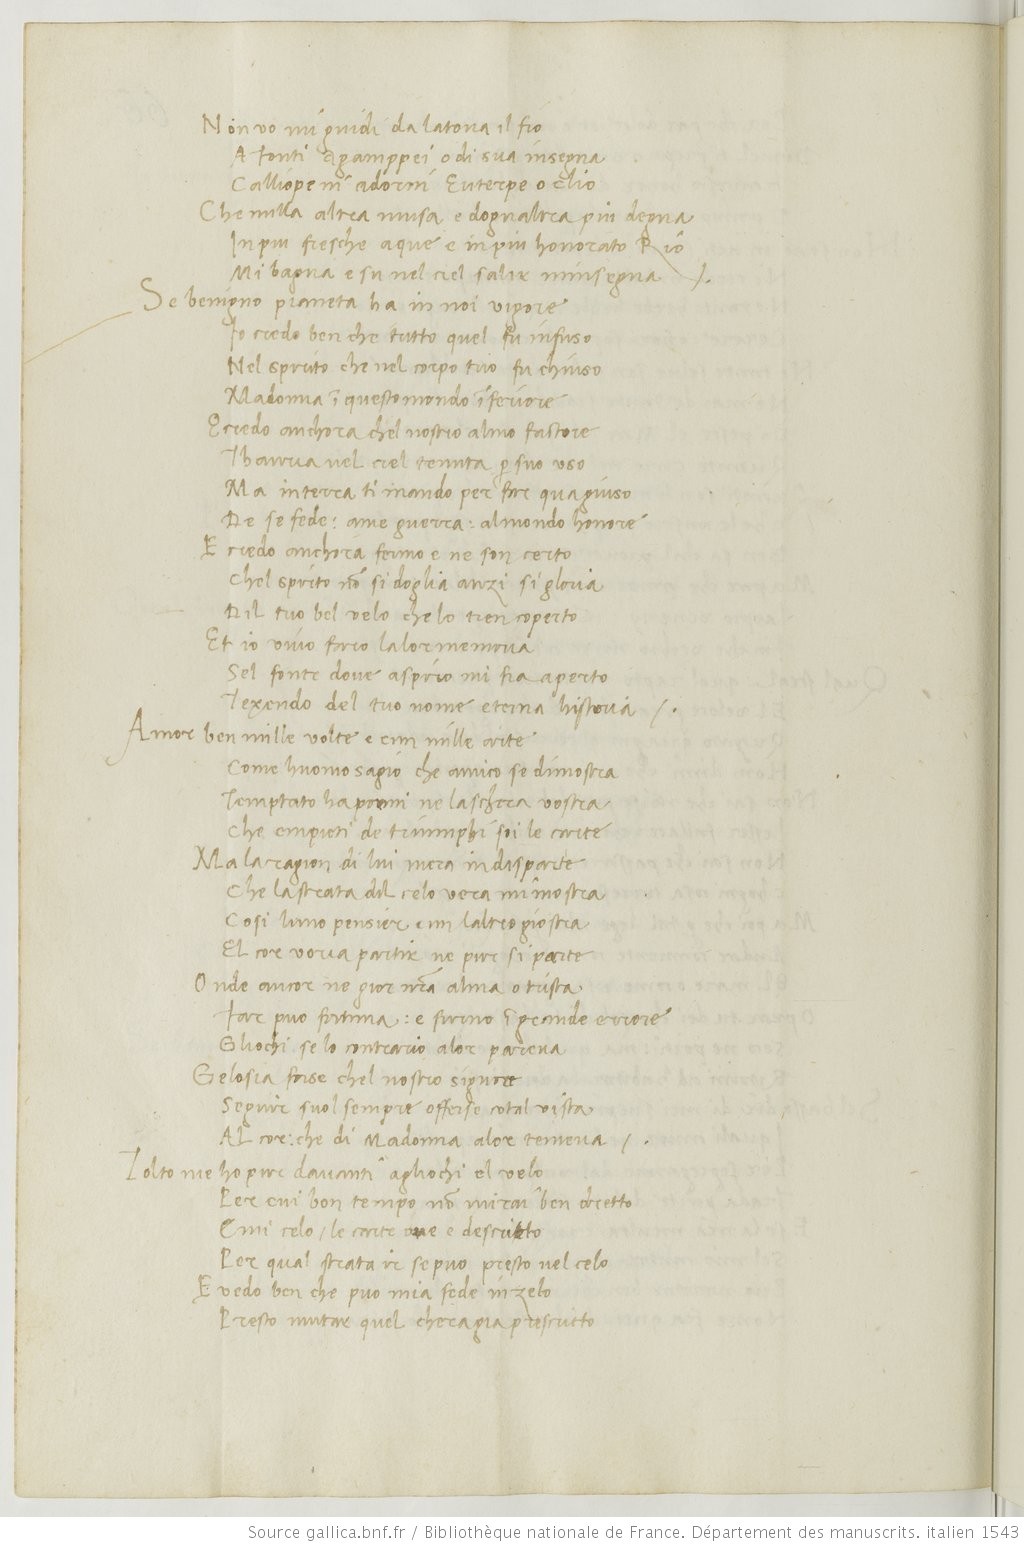 Non vo mi guidi da latona il fio
A fonti agamppei o di sua insegna
Calliope ni adormi Euterpe o clio
Che nulla altra musa e dognaltra piu degna
In piu fresche aque e in piu honorato Rio
Mi bagna e su nel ciel salir minsegna /.
Se benigno pianeta ha in noi vigore
Io credo ben che tutto quel fu infuso
Nel sprito che nel corpo tuo fu chiuso
Madonna ī questo mondo īferiore
E credo anchora chel nostro almo factore
Thavria nel ciel tenuta p suo uso
Ma in terra ti mando per far qua giuso
De se fede: ame guerra: al mondo honore
E credo anchora fermo e ne son certo
Chel sprito nō si doglia anzi si gloria
Dil tuo bel velo che lo tien coperto
Et io vivo farò lalor memoria
Sel fonte dove asprio mi fia aperto
Texendo del tuo nome eterna historia /.
Amor ben mille volte e cun mille arte
Come huomo sagio che amico se dimostra
Temptato ha porni ne la schera vostra
Che empieti de triumphi soi le carte
Ma la ragion di lui mera in disparte
Che la strata dil celo vera mi mostra
Cosi luno pensier cun laltro giostra
El cor voria partir ne pur si parte
Onde ancor ne gioir nr̄a alma o trista
Far puo fortuna: e furno ī grande errore
Gliochi se lo contrario alor pareva
Gelosia forse chel nostro signore
Seguir suol sempre offerse cotal vista
Al cor: che di Madonna alor temeva /.
Tolto me ho pur davanti agliochi el velo
Per cui bon tempo nō mirai ben dretto
E mi celo / le carte oue e descritto
Per qual strata ir se puo presto nel celo
E vedo ben che puo mia fede in zelo
Presto mutar quel chera gia prescritto
Source gallica.bnf.fr / Bibliothèque nationale de France. Département des manuscrits. italien 1543